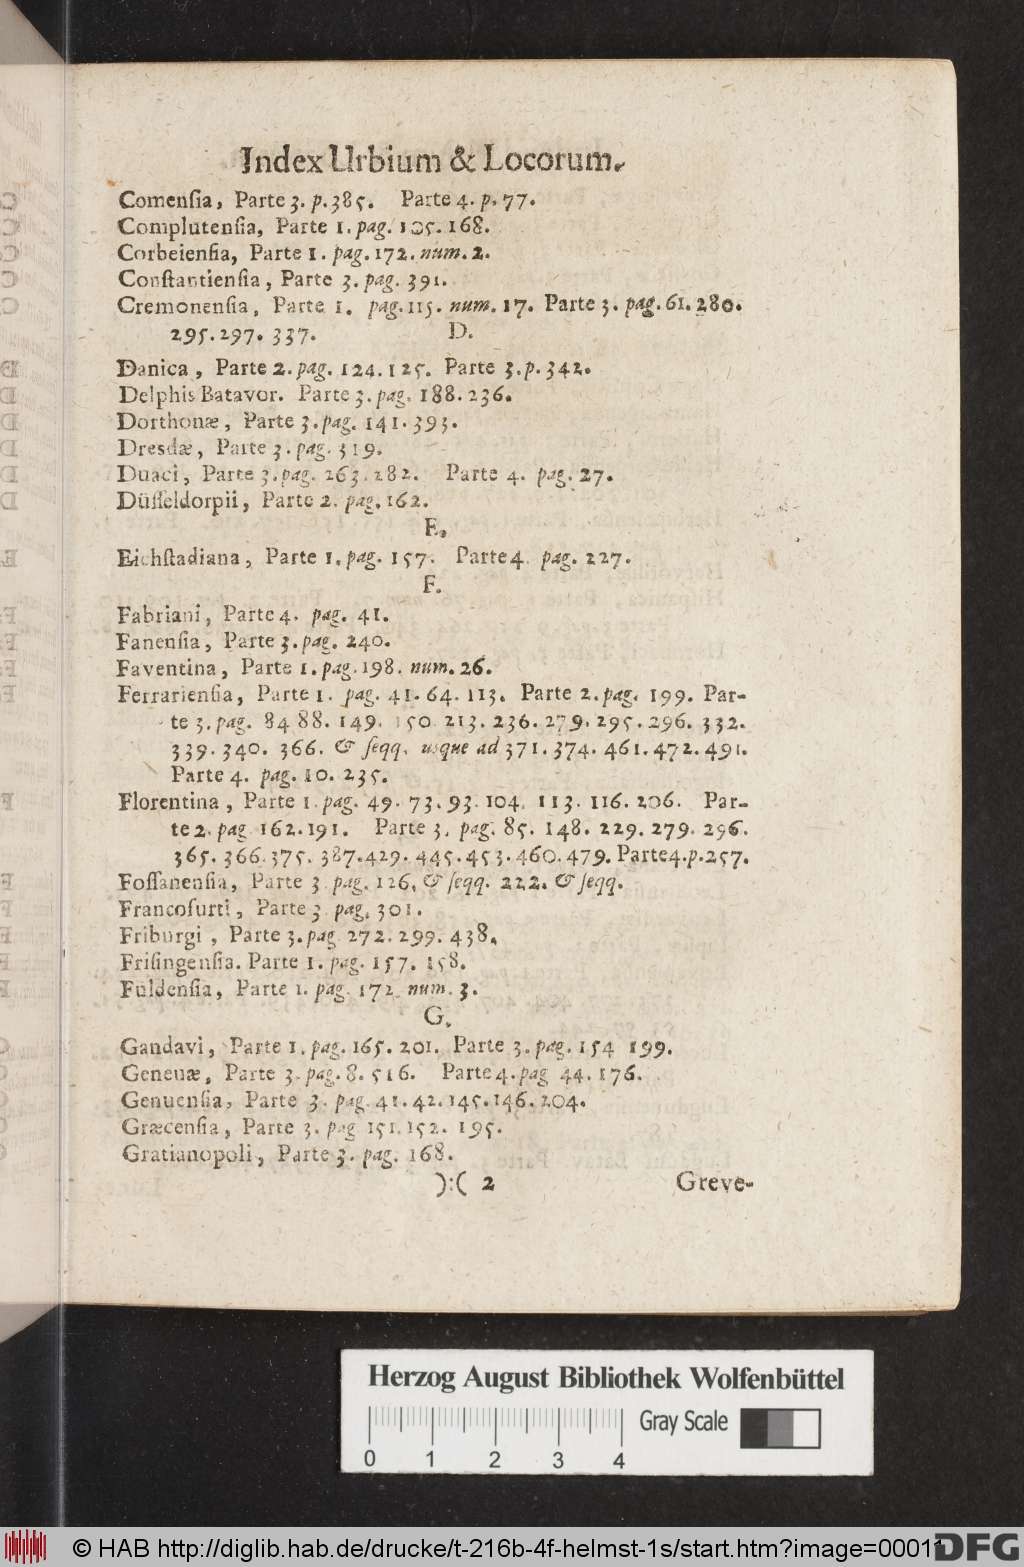 Index Urbium & Locorum.
Comenſia, Parte 3. p. 385. Parte 4. p. 77.
Complutenſia, Parte 1. pag. 105. 168.
Corbeienſia, Parte 1. pag. 172. num. 2.
Conſtantienſia, Parte 3. pag. 391.
Cremonenſia, Parte 1. pag. 115. num. 17. Parte 3. pag. 61. 280.
295. 297. 337.
D.
Danica, Parte 2. pag. 124. 125. Parte 3. p. 342.
Delphis Batavor. Parte 3. pag. 188. 236.
Dorthonæ, Parte 3. pag. 141. 393.
Dresdæ, Parte 3. pag. 319.
Duaci, Parte 3. pag. 263. 282. Parte 4. pag. 27.
Düſſeldorpii, Parte 2. pag. 162.
E.
Eichſtadiana, Parte 1. pag. 157. Parte 4. pag. 227.
F.
Fabriani, Parte 4. pag. 41.
Fanenſia, Parte 3. pag. 240.
Faventina, Parte 1. pag. 198. num. 26.
Ferrarienſia, Parte 1. pag. 41. 64. 113. Parte 2. pag. 199. Par-
te 3. pag. 84 88. 149. 150. 213. 236. 279. 295. 296. 332.
339. 340. 366. & ſeqq. usque ad 371. 374. 461. 472. 491.
Parte 4. pag. 10. 235.
Florentina, Parte 1. pag. 49. 73. 93. 104. 113. 116. 206. Par-
te 2. pag. 162. 191. Parte 3. pag. 85. 148. 229. 279. 296.
365. 366. 375. 387. 429. 445. 453. 460. 479. Parte 4. p. 257.
Foſſanenſia, Parte 3. pag. 126. & ſeqq. 222. & ſeqq.
Francofurti, Parte 3. pag. 301.
Friburgi, Parte 3. pag. 272. 299. 438.
Friſingenſia. Parte 1. pag. 157. 158.
Fuldenſia, Parte 1. pag. 172. num. 3.
G.
Gandavi, Parte 1. pag. 165. 201. Parte 3. pag. 154 199.
Geneuæ, Parte 3. pag. 8. 516. Parte 4. pag 44. 176.
Genuenſia, Parte 3. pag. 41. 42. 145. 146. 204.
Græcenſia, Parte 3. pag 151. 152. 195.
Gratianopoli, Parte 3. pag. 168.
):( 2 Greve-
Herzog August Bibliothek Wolfenbüttel
Gray Scale
0 1 2 3 4
© HAB http://diglib.hab.de/drucke/t-216b-4f-helmst-1s/start.htm?image=00011
DFG